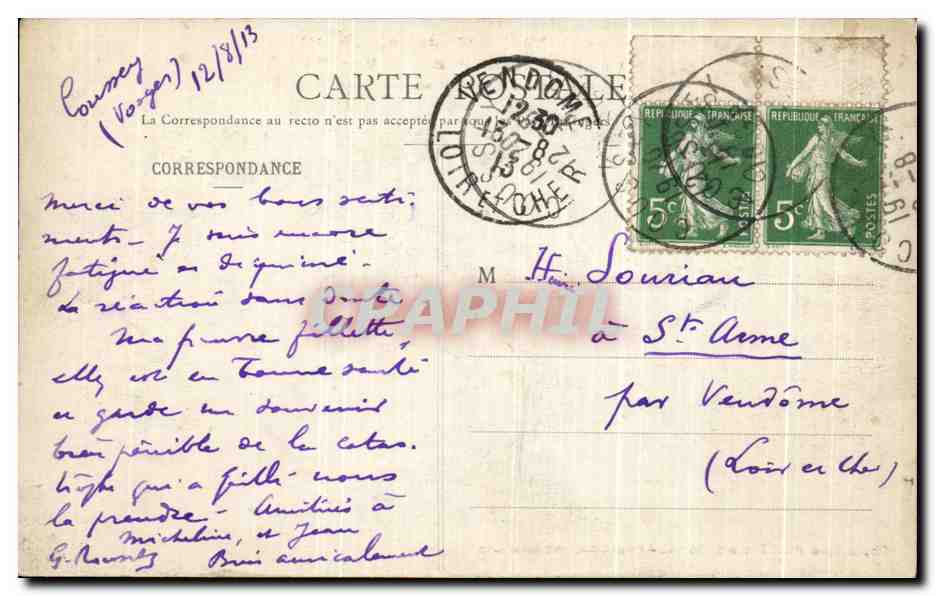 Coussey
(Vosges) 12/8/13
CARTE POSTALE
La Correspondance au recto n'est pas acceptée par
CORRESPONDANCE
Merci de vos bons senti-
ments - Je suis encore
fatigué et déprimé.
La réaction sans doute
Ma pauvre fillette,
elle est en bonne santé
et garde un souvenir
bien pénible de la catas-
trophe qui a failli nous
la prendre - Amitiés à
Micheline, et Jean
Bien amicalement
G.
M Henri Souriau
à St. Anne
par Vendôme
(Loir et Cher)
VENDOME
12 30
13-8
13
LOIR-ET-CHER
REPUBLIQUE FRANÇAISE
5c
POSTES
REPUBLIQUE FRANÇAISE
5c
POSTES
CPAPHIL